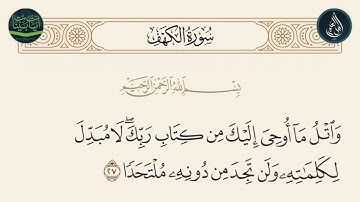 سُورَةُ الكَهْفِ
بِسْمِ اللَّهِ الرَّحْمَٰنِ الرَّحِيمِ
وَٱتْلُ مَآ أُوحِىَ إِلَيْكَ مِن كِتَابِ رَبِّكَۖ لَا مُبَدِّلَ
لِكَلِمَـٰتِهِۦ وَلَن تَجِدَ مِن دُونِهِۦ مُلْتَحَدًۭا ٢٧